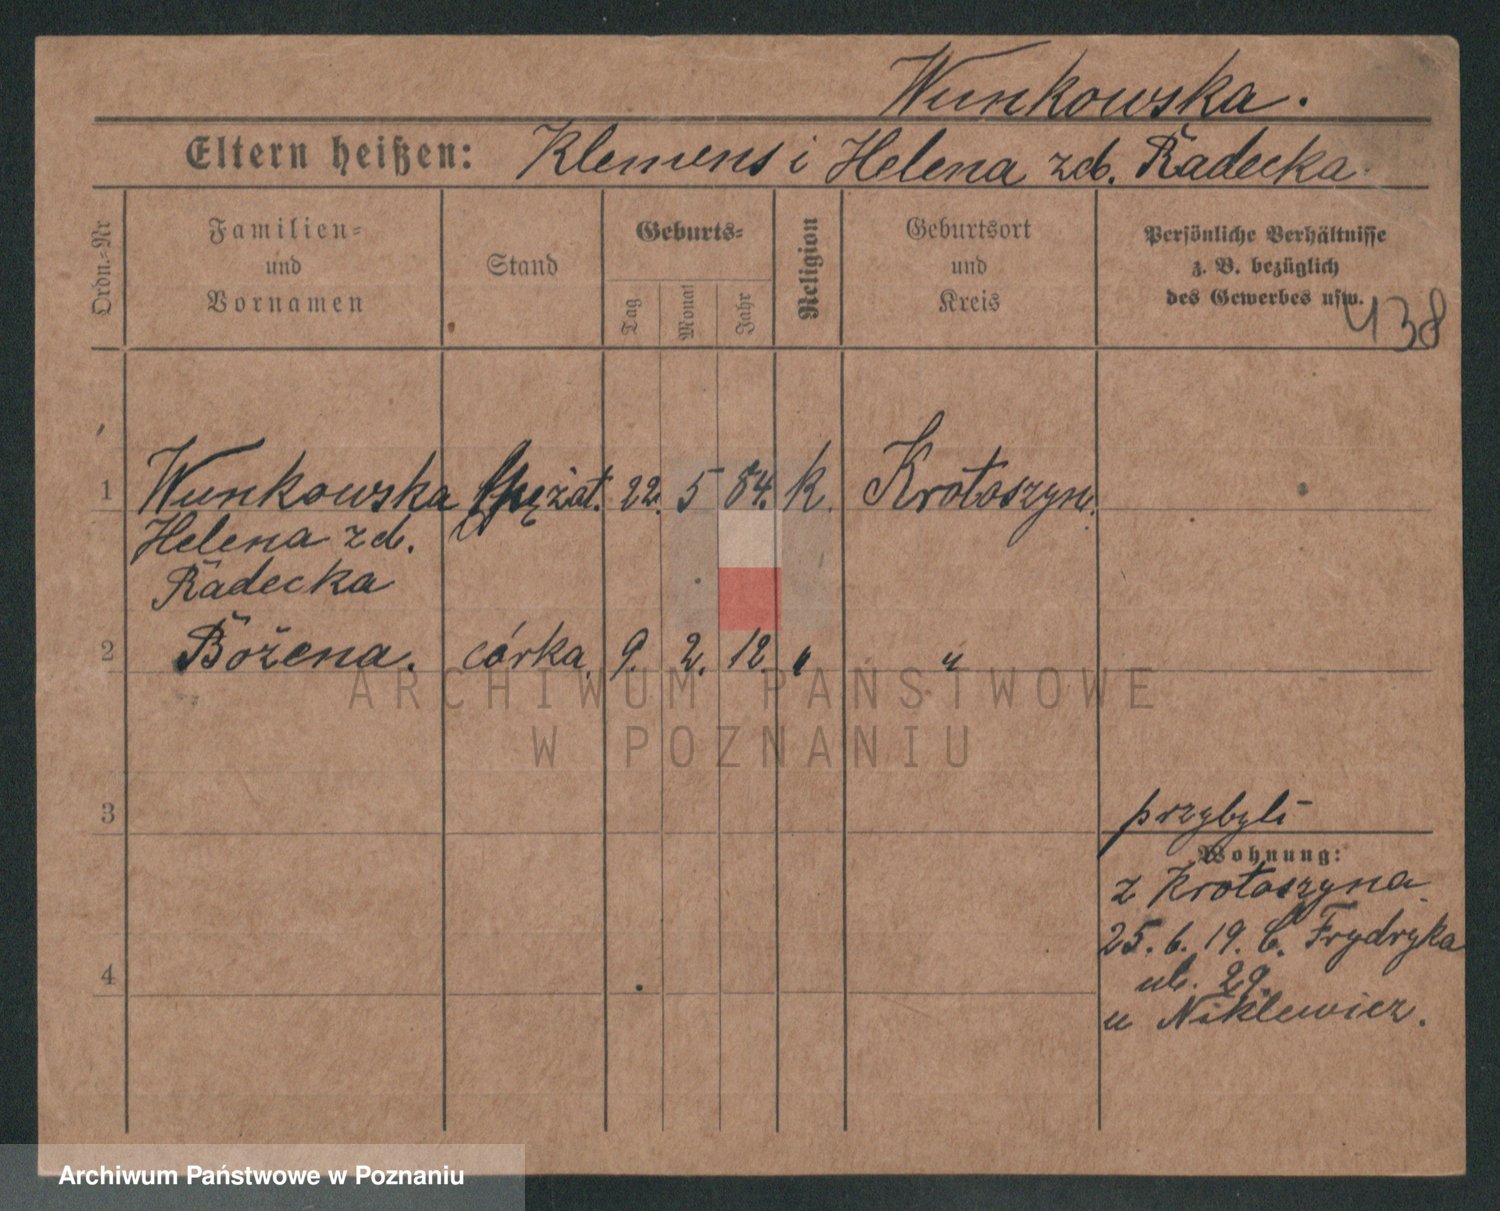 Wunkowska.
Eltern heißen: Klemens i Helena zd. Radecka.
Ordn.=Nr
Familien=
und
Vornamen
Stand
Geburts=
Tag
Monat
Jahr
Religion
Geburtsort
und
Kreis
Persönliche Verhältnisse
z. B. bezüglich
des Gewerbes usw.
438
1 Wunkowska zat. 22. 5 84. k. Krotoszyn.
Helena zd.
Radecka
2 Bożena. córka 9. 2. 12. " "
ARCHIWUM PAŃSTWOWE
W POZNANIU
3
przybyli
Wohnung:
z Krotoszyna
25. 6. 19. Frydryka
4
ul. 29.
u Niklewicz.
Archiwum Państwowe w Poznaniu